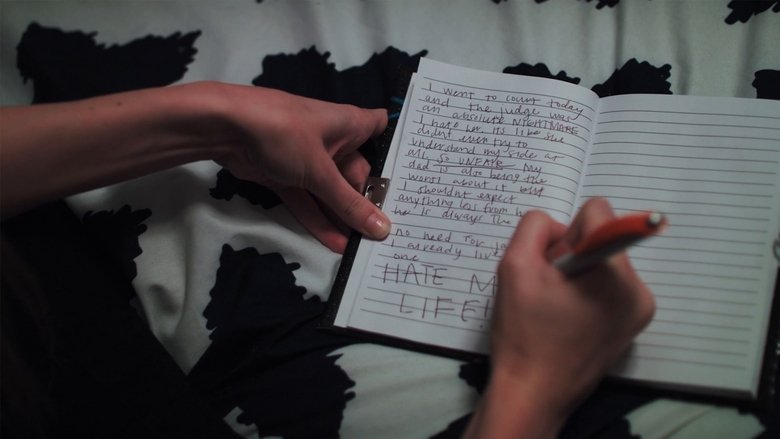 I went to court today
and the judge was
an absolute NIGHTMARE
I hate her its like she
didnt even try to
understand my side at
all, SO UNFAIR. My
dad is also being the
worst about it but
I shouldnt expect
anything less from
he is always the
no need for
I already live
one
HATE
LIFE!